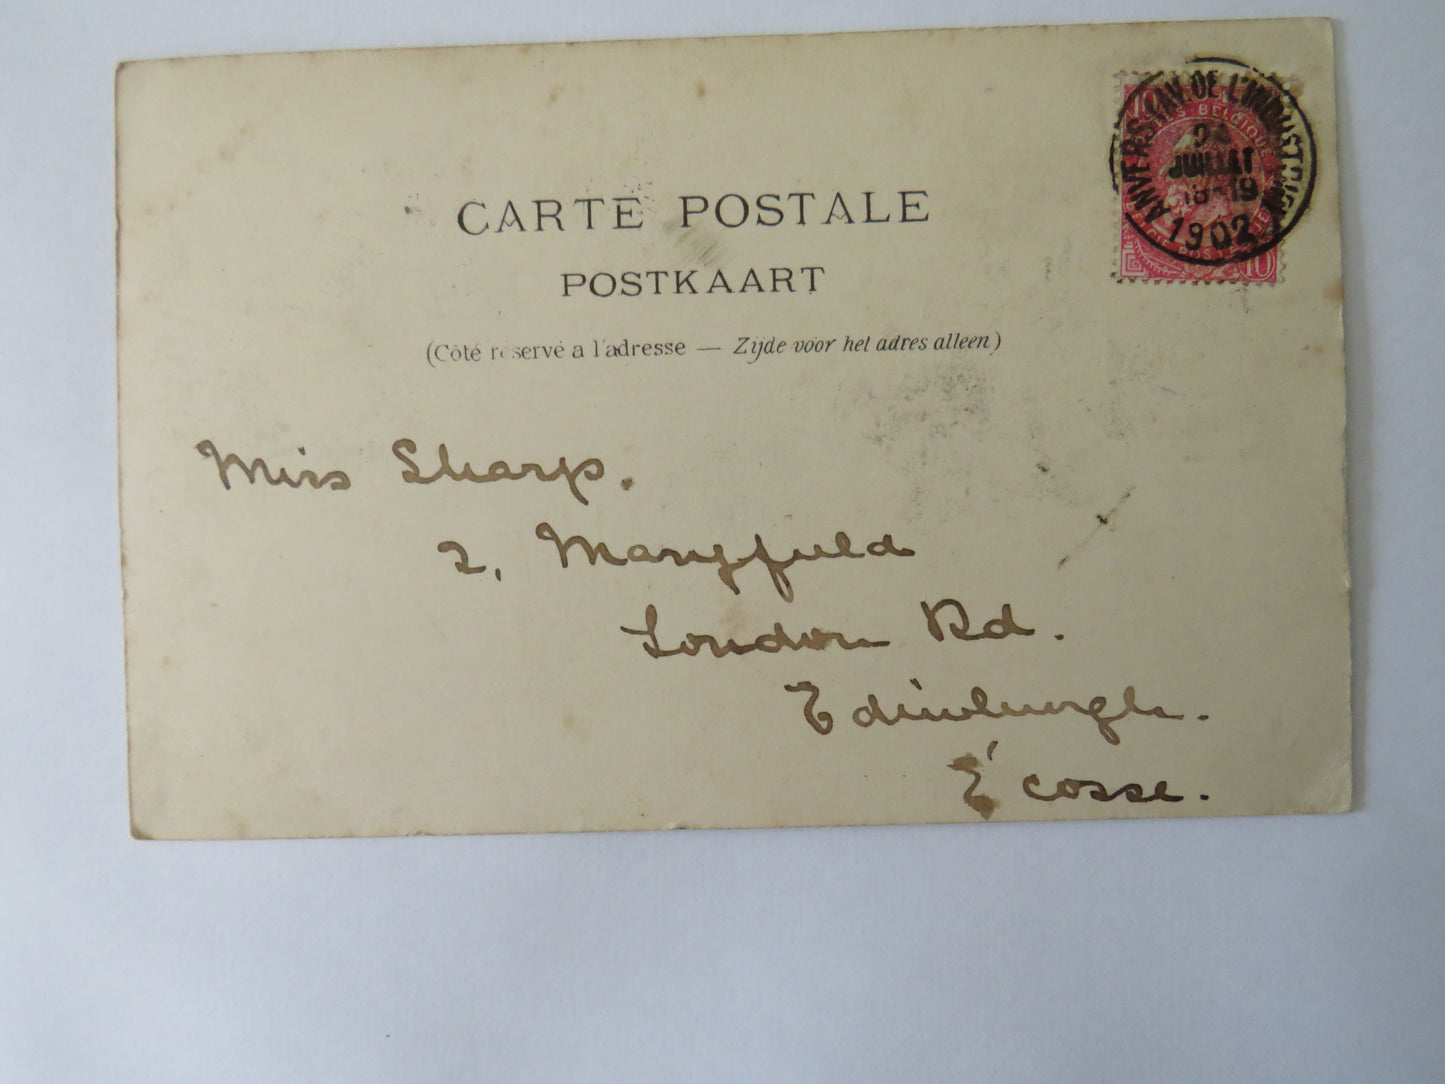 CARTE POSTALE
POSTKAART
(Côté réservé a l'adresse — Zijde voor het adres alleen)
10 BELGIQUE
ANVERS (AV. DE L'INDUSTRIE)
JUILLET
18-19
1902
10
Miss Sharp.
2, Mayfield
London Rd.
Edinburgh.
Écosse.